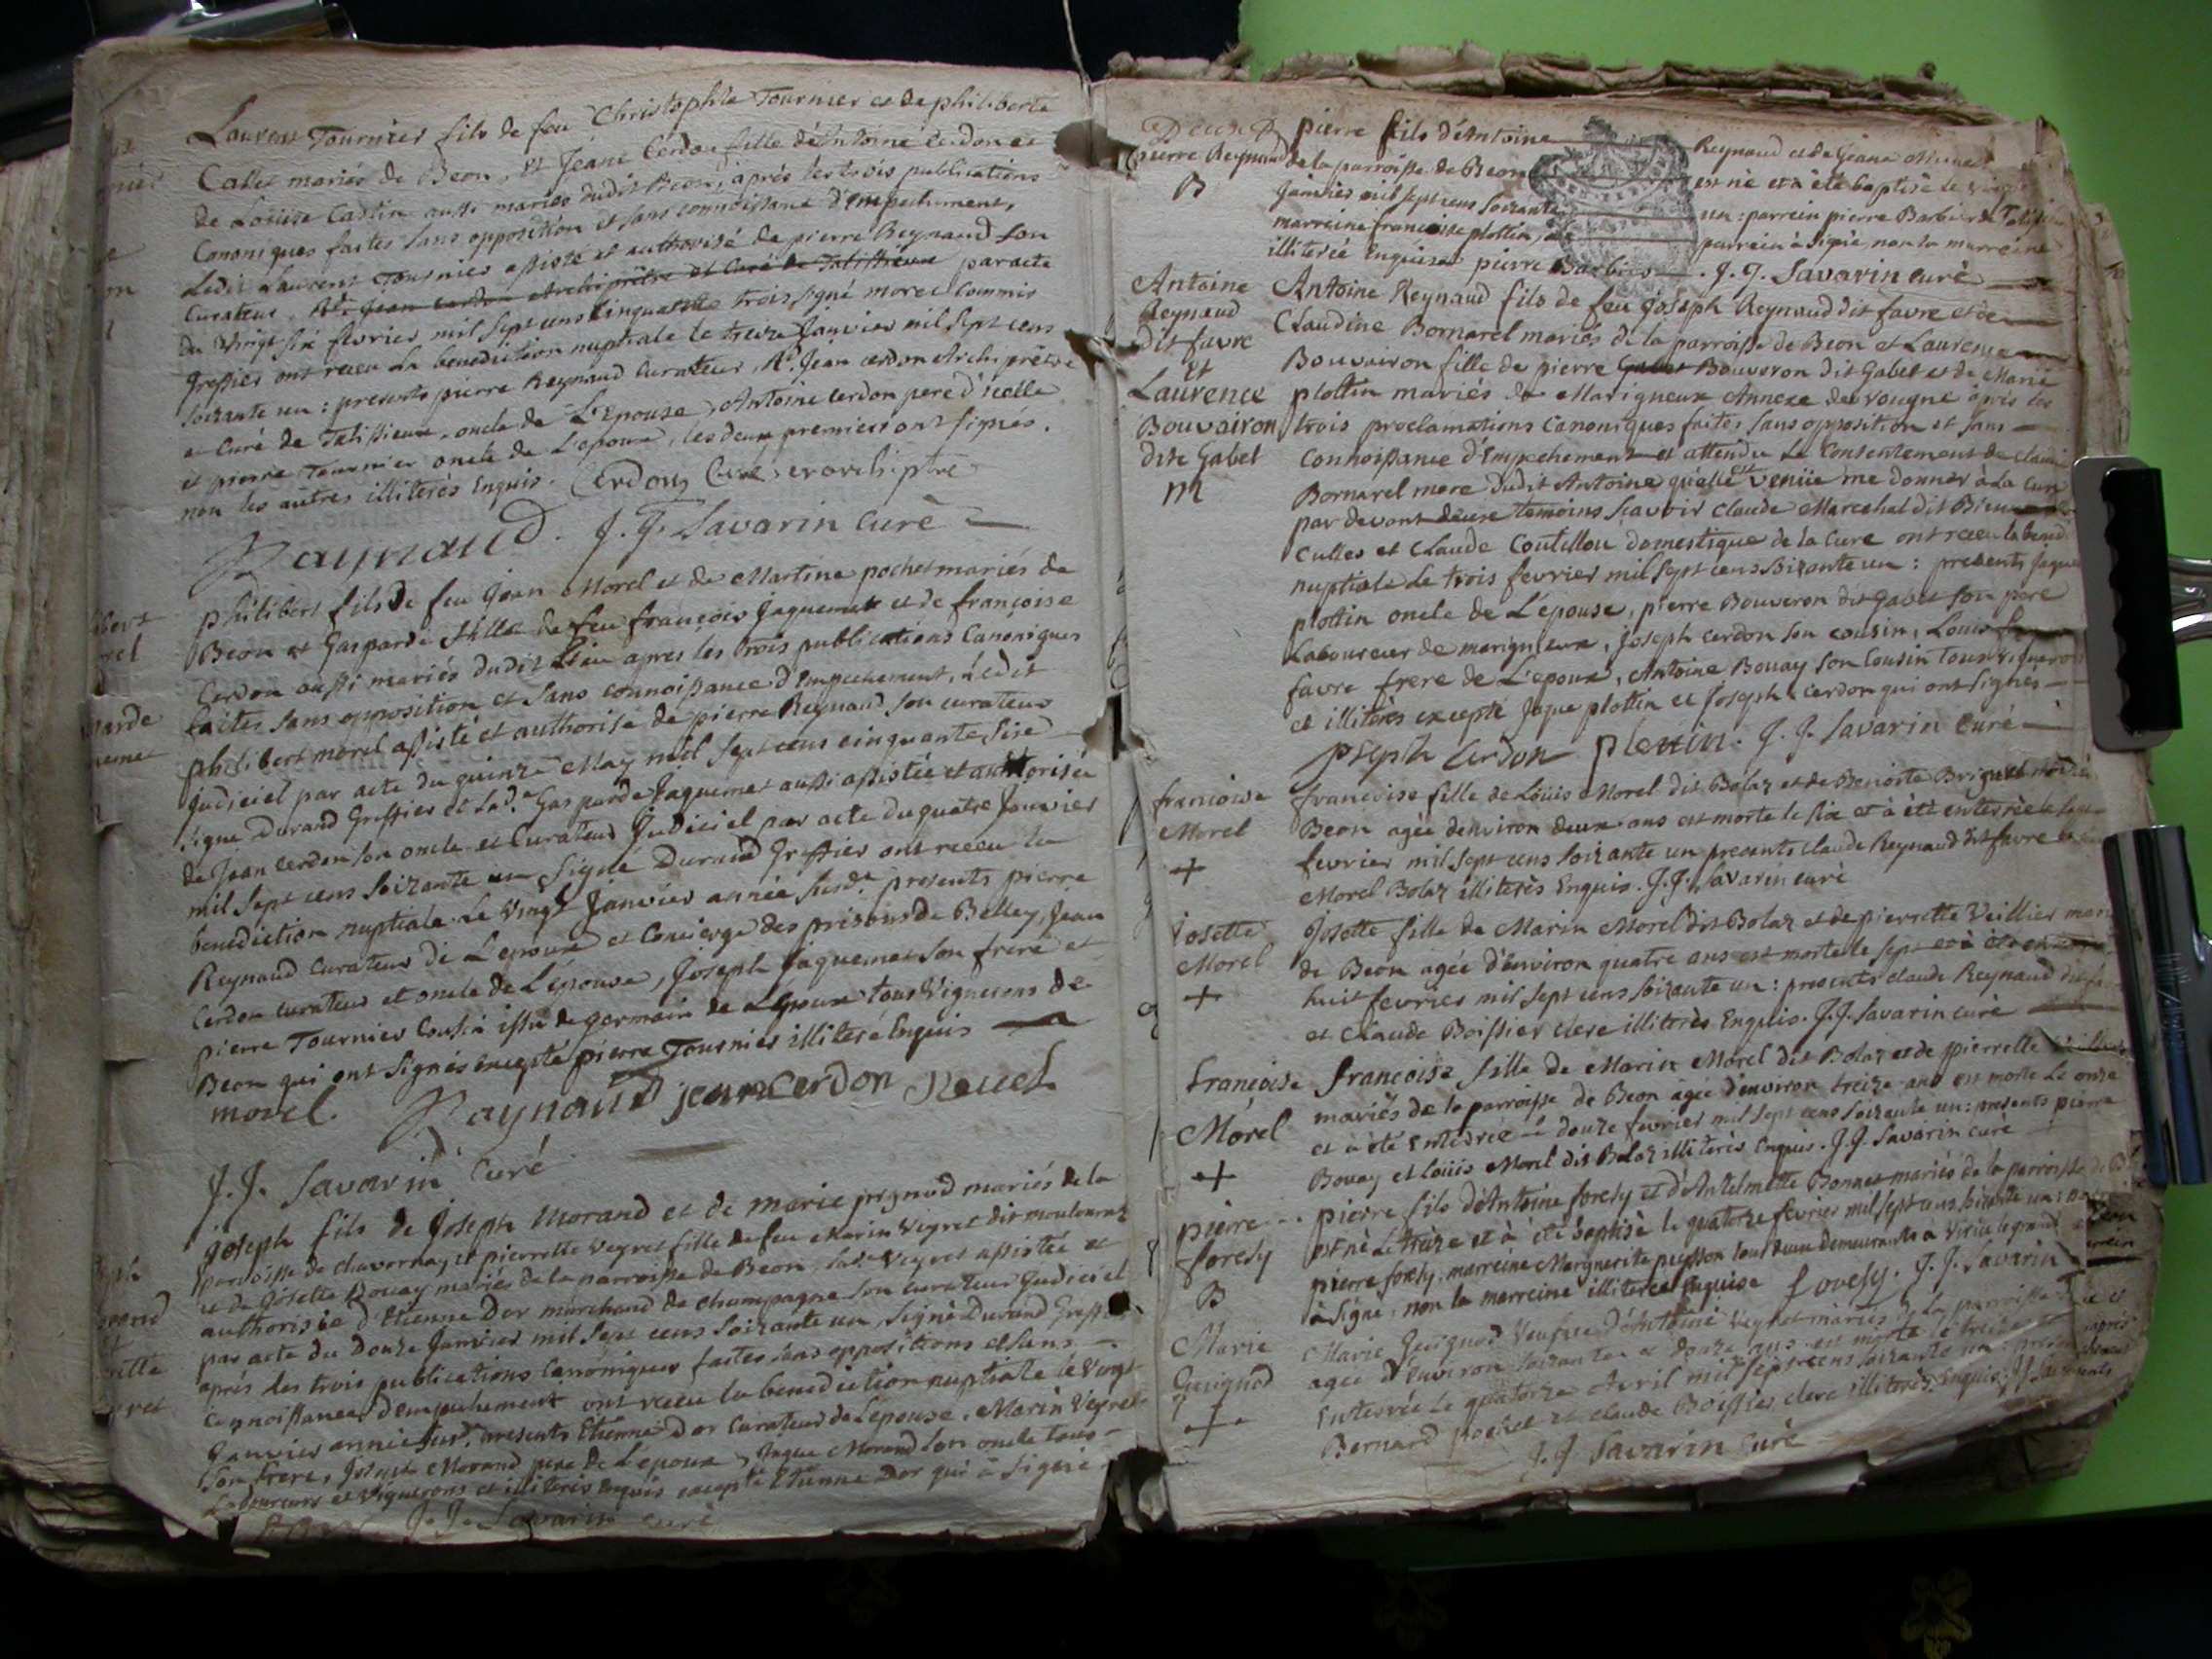 Laurent Tournier fils de feu Christophle Tournier et de philiberte
Callet mariés de Beon, et Jeane Cerdon fille d'Antoine Cerdon et
de Loüise Castin aussi mariés dudit Beon, après les trois publications
Canoniques faites sans opposition et sans connoissance d'Empechement,
Ledit Laurent Tournier assisté et authorisé de pierre Reynaud son
Curateur, Rd. Jean Cerdon Archiprêtre et Curé de Talissieux par acte
du vingt six fevrier mil sept cens cinquante trois signé morel Commis
Greffier ont receu la benediction nuptiale le treize Janvier mil sept cens
soizante un : presents pierre Reynaud Curateur, Rd. Jean Cerdon Archiprêtre
et Curé de Talissieux, oncle de L'Epouse, Antoine Cerdon pere d'icelle
et pierre Tournier oncle de L'epoux, les deux premiers ont signés,
non les autres illiterés Enquis. Cerdon, Curé et archiptre
Raynaud. J. J. Savarin Curé
ibert
rel
philibert fils de feu Jean Morel et de Martine pochet mariés de
Beon et Gasparde fille de feu françois Jaquemet et de françoise
Cerdon aussi mariés dudit Lieu apres les trois publications Canoniques
faites sans opposition et sans connoissance d'Empechement, Ledit
arde
emet
philibert morel assisté et authorisé de pierre Reynaud son curateur
judiciel par acte du quinze May mil sept cens cinquante sixe
signé Durand Greffier et lad.e Gasparde Jaquemet aussi assistée et authorisée
de Jean Cerdon son oncle et Curateur Judiciel par acte du quatre Janvier
mil sept cens soizante un signé Durand Greffier ont receu la
benediction nuptiale le vingt Janvier année susd.e presents pierre
Reynaud Curateur de L'epoux et Concierge des prisons de Belley, Jean
Cerdon curateur et oncle de L'épouse, Joseph Jaquemet son frere et
pierre Tournier Cousin issu de germain de L'Epoux tous Vignerons de
Beon qui ont Signés excepté pierre Tournier illiteré Enquis
morel. Raynaud jean Cerdon
J. J. Savarin Curé
joseph fils de Joseph Morand et de marie mariés de la
parroisse de Chavornay, et pierrette Veyret fille de feu Marin Veyret dit
et de Josette Bouay mariés de la parroisse de Beon, lad.e Veyret assistée et
authorisée d'Etienne Dor marchand de Champagne son curateur Judiciel
par acte du Douze Janvier mil sept cens soizante un, signé Durand Greff.
après les trois publications Canoniques faites sans oppositions et sans
connoissance d'empechement ont receu la benediction nuptiale le vingt
Janvier année susd.e presents Etienne Dor Curateur de L'epouse, Marin Veyret
son frere, Joseph Morand pere de L'epoux, Jaque Morand son oncle tous
Laboureurs et Vignerons et illiterés Enquis excepté Etienne Dor qui à signé
J. J. Savarin curé
pierre Reynaud
B
pierre fils d'Antoine Reynaud et de Jeane
de la parroisse de Beon est né et à été baptisé le vingt
Janvier mil sept cens soizante un : parrein pierre Barbier de
marreine francoise plottin, parrein à signé, non la marreine
illiterée Enquise pierre Barbier. J. J. Savarin curé
Antoine
Reynaud
dit favre
et
Laurence
Bouvairon
dite Gabet
m
Antoine Reynaud fils de feu Joseph Reynaud dit favre et de
Claudine Bornarel mariés de la parroisse de Beon et Laurence
Bouvairon fille de pierre Gabet Bouveron dit Gabet et de Marie
plottin mariés de Marigneux Annexe de Vougne après les
trois proclamations Canoniques faites sans opposition et sans
connoissance d'Empechement et attendu Le Consentement de
Bornarel mere dudit Antoine qu'elle est veniie me donner à La Cure
par devant deux temoins sçavoir Claude Marechal dit
Culles et Claude Coutillou domestique de la Cure ont receu la
nuptiale le trois fevrier mil sept cens soizante un : presents Jaque
plottin oncle de L'epouse, pierre Bouveron dit Gabet son pere
Laboureur de marigneux, Joseph Cerdon son cousin, Louis
favre frere de L'epoux, Antoine Bouay son Cousin Tous vignerons
et illiterés excepté Jaque plottin et Joseph Cerdon qui ont signés
joseph Cerdon plettin. J. J. Savarin Curé
francoise
Morel
+
francoise fille de Loüis Morel dit Bolaz et de Benoite
Beon agée d'environ deux ans est morte le six et à été enterrée le sept
fevrier mil sept cens soizante un presents Claude Reynaud dit favre et
Morel Bolaz illiterés Enquis. J. J. Savarin curé
Josette
Morel
+
Josette fille de Marin Morel dit Bolaz et de pierrette Veillier
de Beon agée d'environ quatre ans est morte le sept et à été
huit fevrier mil sept cens soizante un : presents claude Reynaud dit
et Claude Boissier clerc illiterés Enquis. J. J. Savarin curé
françoise
Morel
+
francoise fille de Marin Morel dit Bolaz et de pierrette
mariés de la parroisse de Beon agée d'environ treize ans est morte Le onze
et à été Enterrée le douze fevrier mil sept cens soizante un : presents pierre
Bouay et Loüis Morel dit Bolaz illiterés Enquis. J. J. Savarin curé
pierre
forely
B
pierre fils d'Antoine forely et d'Antelmette Bonnet mariés de la parroisse de
est né Le treize et à été baptisé le quatorze fevrier mil sept cens soizante un :
pierre forely, marreine Marguerite tous deux demeurants à Virieu le grand
à signé, non la marreine illiterée Enquise forely. J. J. Savarin
Marie
Guignod
+
Marie Guignod Veufve d'Antoine Veyret mariés de la parroisse
agée d'Environ soizante et douze ans est morte le treize
Enterrée Le quatorze Avril mil sept cens soizante un :
Bernard pochet et Claude Boissier clerc illiterés Enquis.
J. J. Savarin Curé